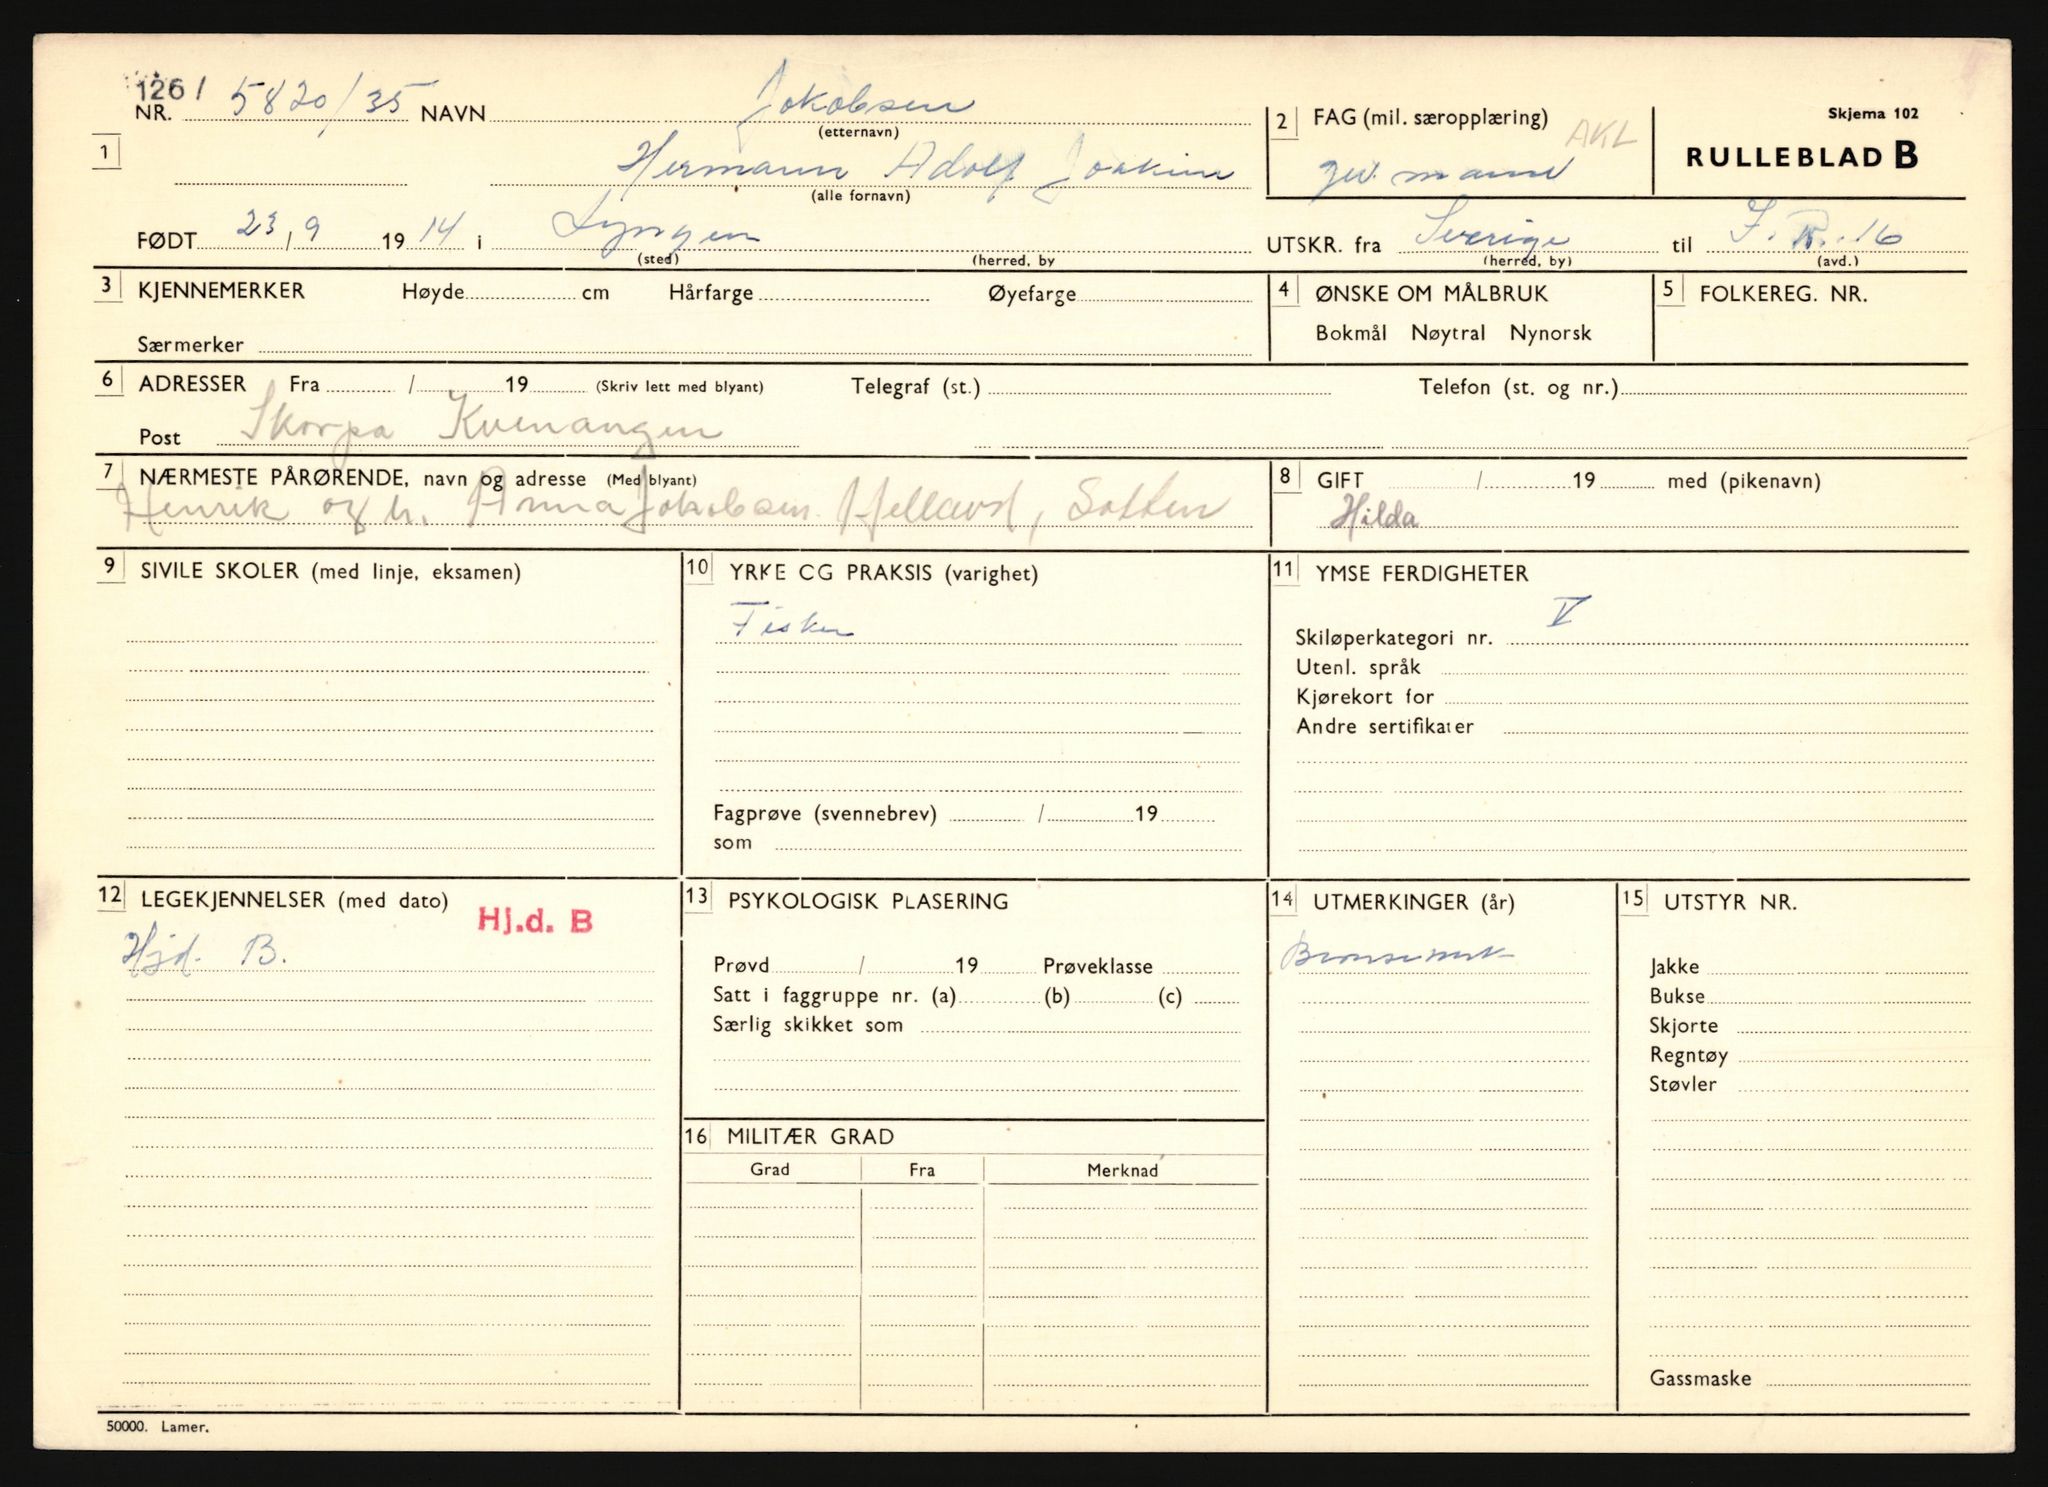 1261 5820/35 NAVN Jokobsen
NR. (etternavn)
1 Hermann Adolf Joakim
(alle fornavn)
2 FAG (mil. særopplæring) AKL
gev. mann
Skjema 102
RULLEBLAD B
FØDT 23/9 1914 i Lyngen
(sted) (herred, by
UTSKR. fra Sverige til I.R.16
(herred, by) (avd.)
3 KJENNEMERKER Høyde cm Hårfarge Øyefarge
Særmerker
4 ØNSKE OM MÅLBRUK
Bokmål Nøytral Nynorsk
5 FOLKEREG. NR.
6 ADRESSER Fra / 19 (Skriv lett med blyant) Telegraf (st.) Telefon (st. og nr.)
Post Skorpa Kvenangen
7 NÆRMESTE PÅRØRENDE, navn og adresse (Med blyant)
Henrik og h. Anna Jakobsen
8 GIFT / 19 med (pikenavn)
Hilda
9 SIVILE SKOLER (med linje, eksamen)
10 YRKE CG PRAKSIS (varighet)
Fisker
Fagprøve (svennebrev) / 19
som
11 YMSE FERDIGHETER
Skiløperkategori nr. V
Utenl. språk
Kjørekort for
Andre sertifikater
12 LEGEKJENNELSER (med dato) Hj.d. B
Hjd. B.
13 PSYKOLOGISK PLASERING
Prøvd / 19 Prøveklasse
Satt i faggruppe nr. (a) (b) (c)
Særlig skikket som
14 UTMERKINGER (år)
15 UTSTYR NR.
Jakke
Bukse
Skjorte
Regntøy
Støvler
Gassmaske
16 MILITÆR GRAD
Grad Fra Merknad
50000. Lamer.